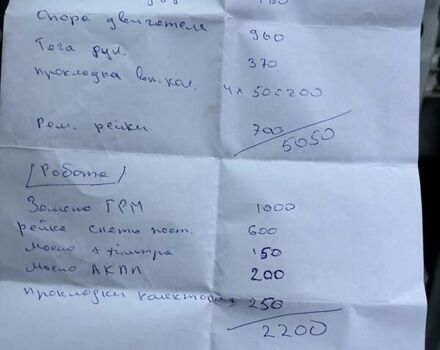 Опора двигателя 960
Тяга рул. 370
прокладка вп. кол. 4х50=200
Рем. рейки 700
5050
Робота
Замена ГРМ 1000
рейка снять пост. 600
масло + фильтра 150
масло АКПП 200
прокладки колектора 250
2200